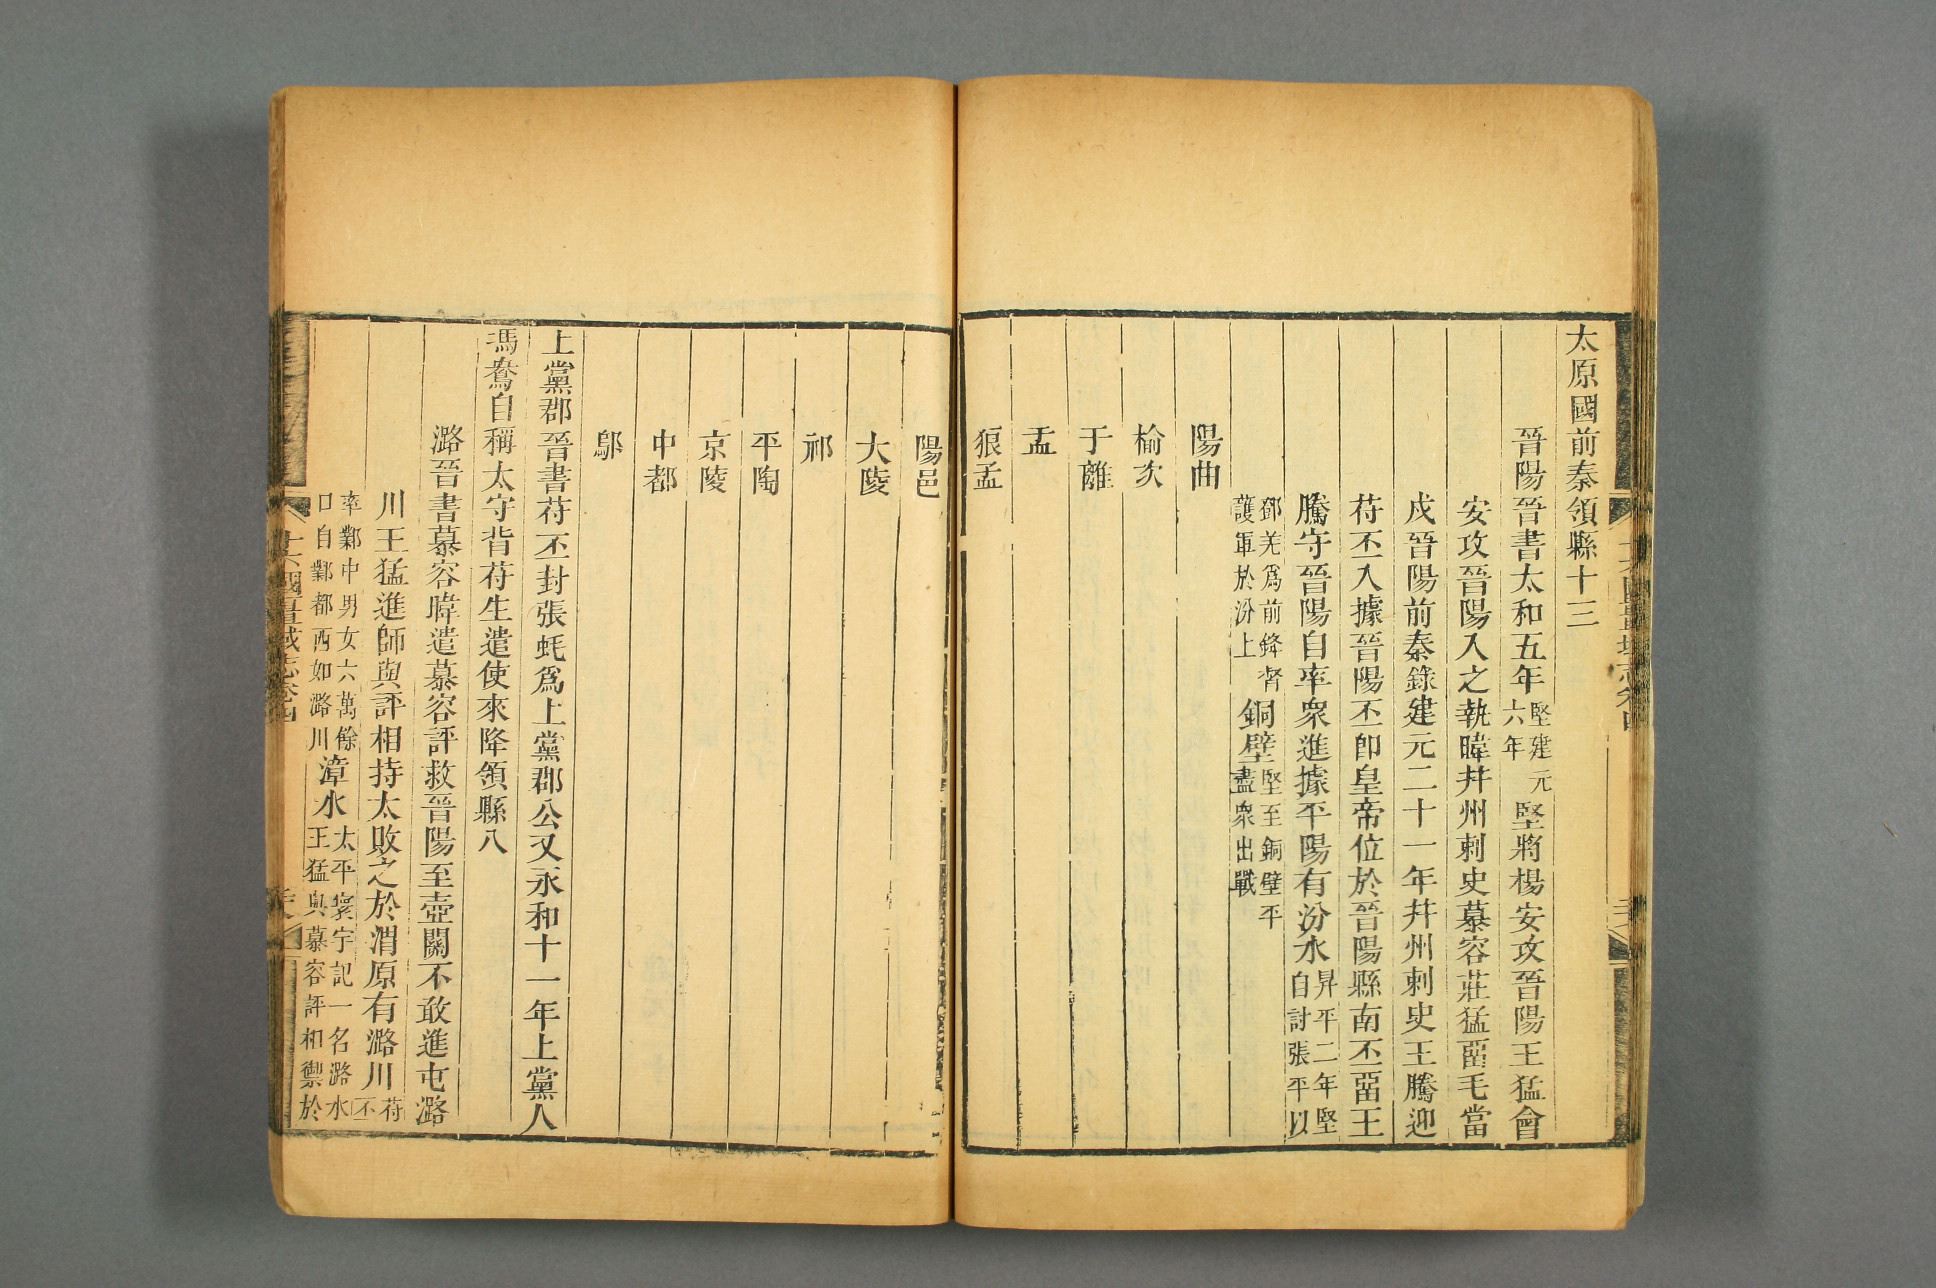 太原國前秦領縣十三
晉陽晉書太和五年堅建元六年堅將楊安攻晉陽王猛會
安攻晉陽入之執暐幷州刺史慕容莊猛畱毛當
戍晉陽前秦錄建元二十一年幷州刺史王騰迎
苻丕入據晉陽丕卽皇帝位於晉陽縣南丕畱王
騰守晉陽自率衆進據平陽有汾水昇平二年堅自討張平以
鄧羌爲前鋒督護軍於汾上銅壁堅至銅壁平盡衆出戰
陽曲
榆次
于離
盂
狼孟
陽邑
大陵
祁
平陶
京陵
中都
鄔
上黨郡晉書苻丕封張蚝爲上黨郡公又永和十一年上黨人
馮鴦自稱太守背苻生遣使來降領縣八
潞晉書慕容暐遣慕容評救晉陽至壺關不敢進屯潞
川王猛進師與評相持大敗之於渭原有潞川苻丕
率鄴中男女六萬餘口自鄴都西如潞川漳水太平寰宇記一名潞水王猛與慕容評相禦於
十六國疆域志卷四